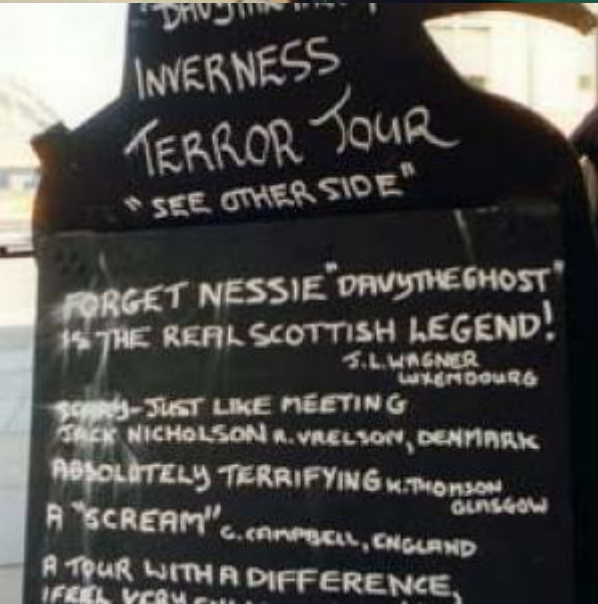 INVERNESS
TERROR TOUR
"SEE OTHER SIDE"
FORGET NESSIE "DAVYTHEGHOST"
IS THE REAL SCOTTISH LEGEND!
J.L.WAGNER
LUXEMBOURG
SCARY-JUST LIKE MEETING
JACK NICHOLSON R.VRELSON, DENMARK
ABSOLUTELY TERRIFYING K.THOMSON
GLASGOW
A "SCREAM" C.CAMPBELL, ENGLAND
A TOUR WITH A DIFFERENCE,
I FEEL VERY